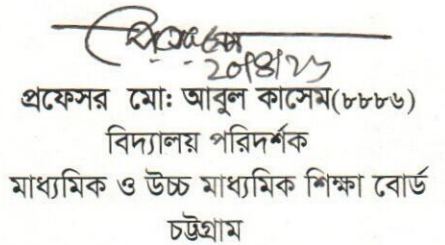 ২০/৪/২১
প্রফেসর মো: আবুল কাসেম(৮৮৮৬)
বিদ্যালয় পরিদর্শক
মাধ্যমিক ও উচ্চ মাধ্যমিক শিক্ষা বোর্ড
চট্টগ্রাম